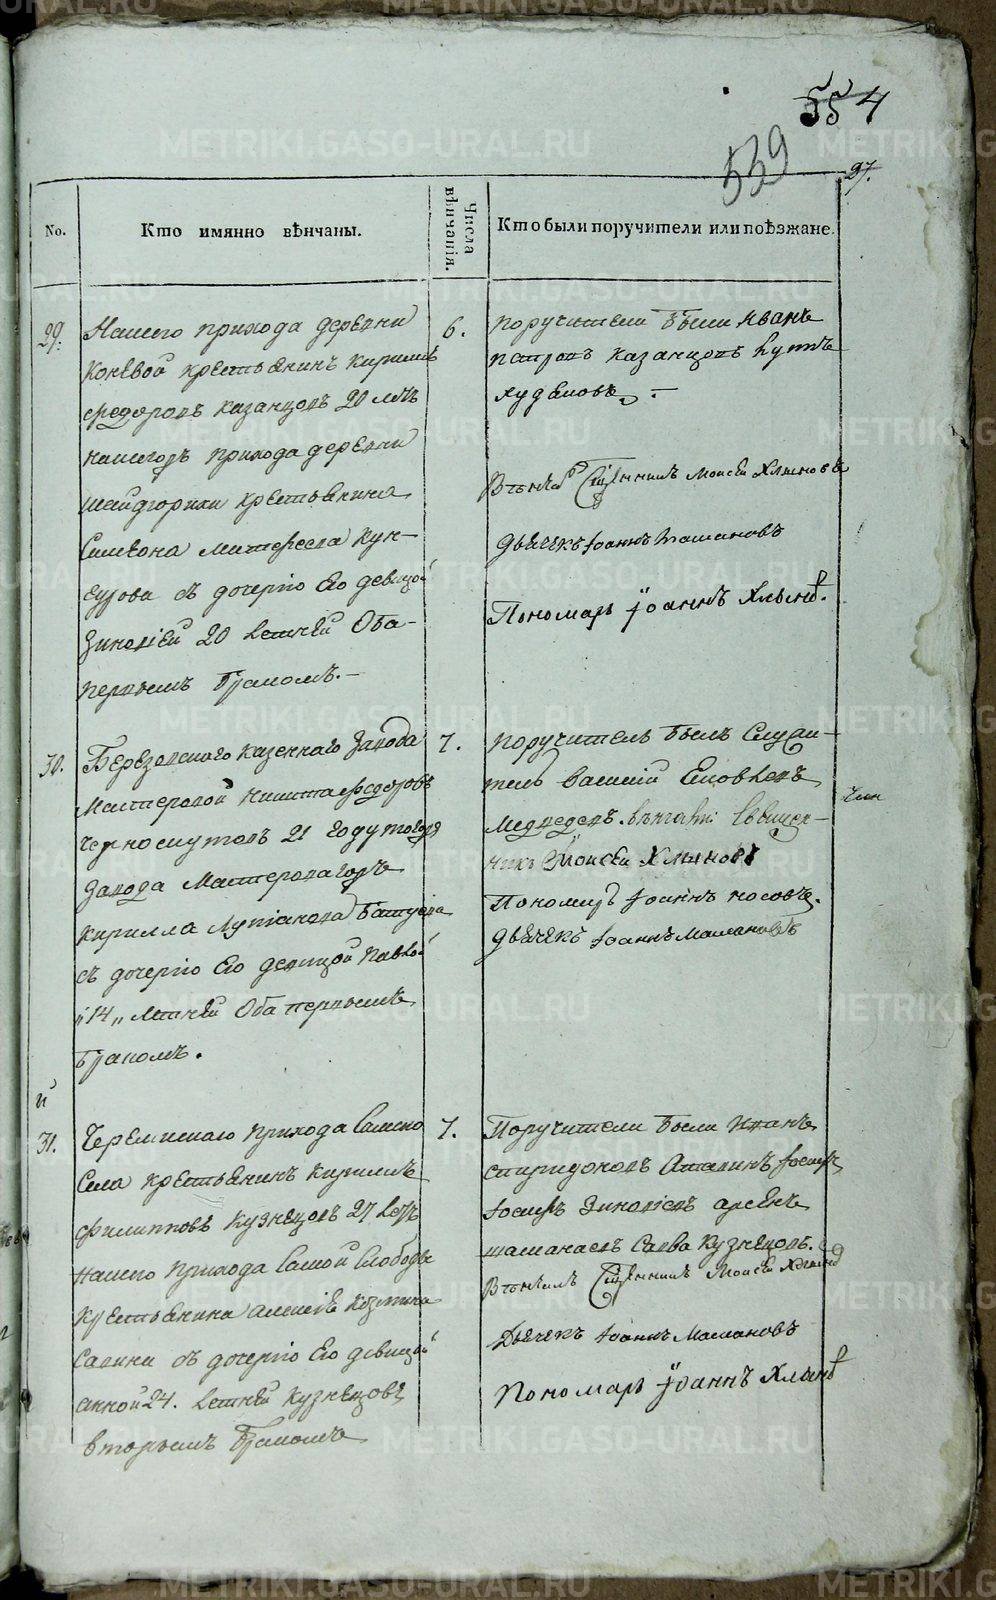 554
539
97.
No.
Кто имянно вѣнчаны.
Числа вѣнчанія.
Кто были поручители или поѣзжане.
29.
Нашего прихода деревни
Коневой крестьянинъ Кириллъ
Федоровъ Казанцовъ 20 лѣтъ
нашегожъ прихода деревни
Шайдурихи крестьянина
Симеона Кун-
цова съ дочерію Его девицой
Зиновіей 20 летней Оба
первымъ бракомъ.
6.
поручители были Иванъ
Петровъ Казанцовъ
Худяковъ.
Вѣнчалъ Священникъ Моисей Хлыновъ
Дьячекъ Іоаннъ Машановъ
Пономарь Іоаннъ Хлынов.
30.
Березовского казеннаго завода
Мастеровой Никита Федоровъ
Черномутовъ 21 году тогожъ
завода Мастероваго
Кирилла Лутанова Батуева
съ дочерію Его девицой Павлой
"14" летней Оба первымъ
бракомъ.
7.
поручитель былъ Служи-
тель Василий
Медведевъ. вѣнчалъ Священ-
никъ Моисей Хлыновъ
Пономарь Іоаннъ Носовъ.
Дьячекъ Іоаннъ Машановъ
Член
и
31.
Черемискаго прихода Самого
Села крестьянинъ Кириллъ
Филипповъ Кузнецовъ 27 летъ
нашего прихода Самой Слободы
Крестьянина Алексѣя Козмина
Савина съ дочерію Его девицой
Анной 24. летней Кузнецовъ
вторымъ бракомъ
7.
Поручители были Иванъ
Спиридоновъ Аталинъ Іосифъ
Іосифъ Зиновіевъ Арсенъ
Шаманаевъ Савва Кузнецовъ.
Вѣнчалъ Священникъ Моисей Хлынов
Дьячекъ Іоаннъ Машановъ
Пономарь Іоаннъ Хлынов
METRIKI.GASO-URAL.RU